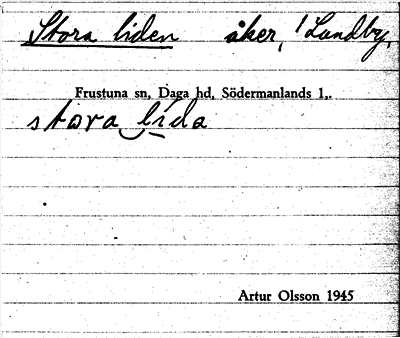 Stora liden åker, Lundby,
Frustuna sn, Daga hd, Södermanlands l,.
stora lida
Artur Olsson 1945